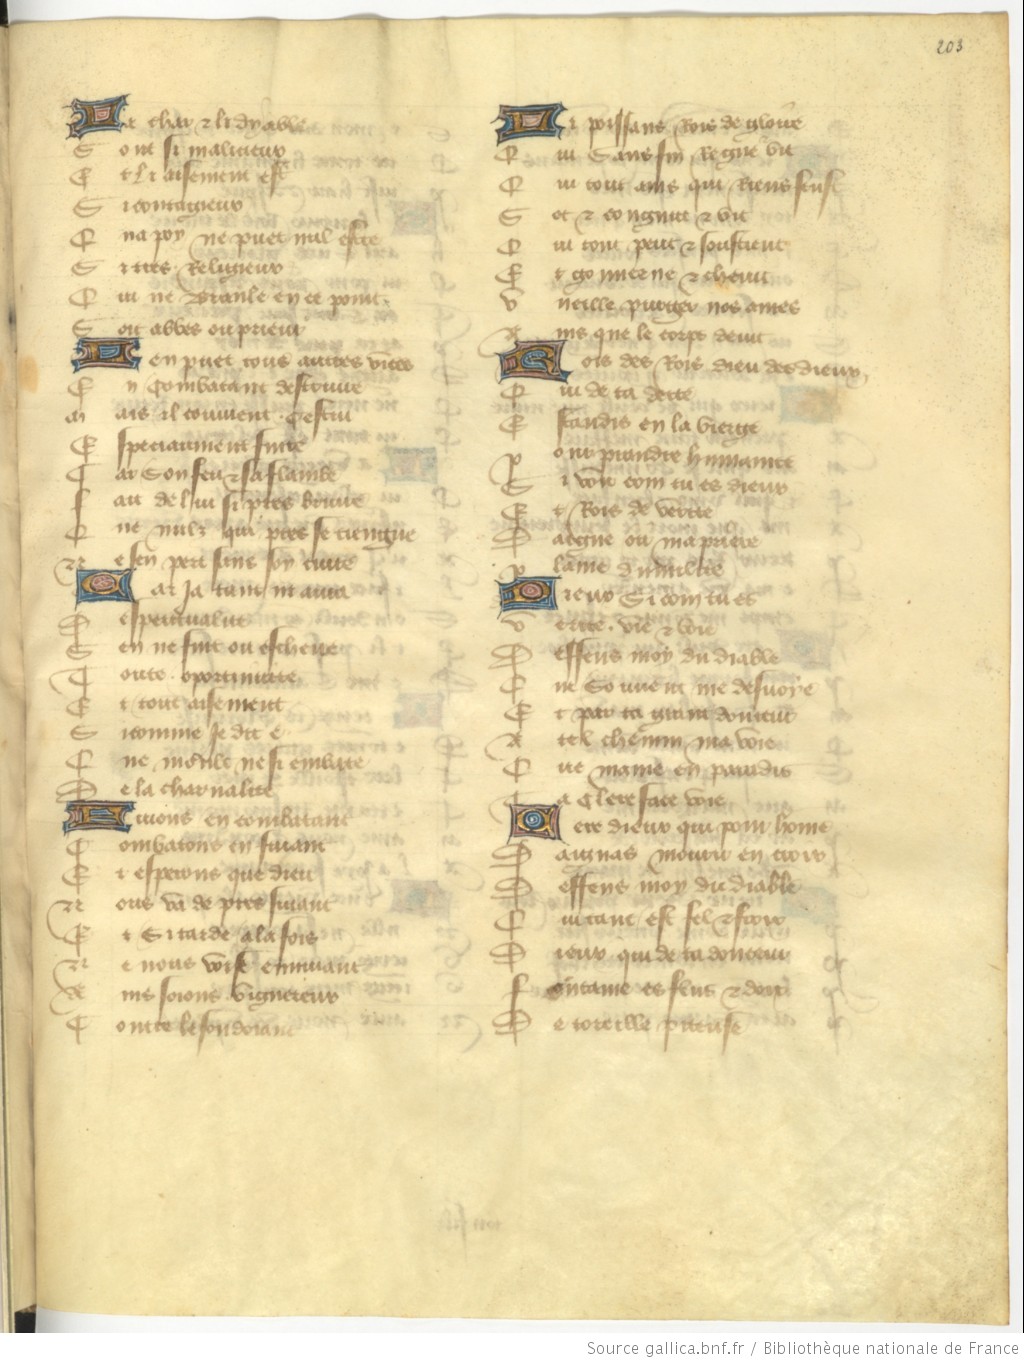 203
La char & li dyable
Sont si malicieux
Et li aisement est
Si contagieux
Qua poy ne puet nul estre
Si tres Religieux
Qui ne branle en ce point
Soit abbes ou prieur
Len puet tous autres vices
En combatant destruire
Mais il convient cestui
Especiaument fuire
Car son feu & sa flambe
Fait de lui si pres bruire
Que nulz qui pres se tiengne
Ne sen part sans soy cuire
Car ja tant n aura
Desperitualite
Sen ne fuit ou eschieue
Toute oportunite
Et tout aisement
Si comme je dit e
Que ne se embate
De la charnalite
Fuions en combatant
Combatons en fuiant
Et esperons que dieu
Nous va de pres suiant
Et Si tarde a la fois
Ne nous voise ennuiant
Ains soions viguereux
Contre le fondoiant
Li poissans Rois de gloire
Qui Sans fin Regne & vit
Qui tout ains qui Riens feust
Sot & congnut & vit
Qui tout peut & soustient
Et gouuerne & cheuit
Vueille purger nos ames
Ains que le corps deuit
Rois des Rois dieu des dieux
Qui de ta deite
Esconsis en la vierge
Pour prandre humanite
Si voir com tu es dieux
Et Rois de verite
Daigne oir ma priere
Plaine dumilite
Dieux Si com tu es
Verite vie & voie
Deffens moy du diable
Que Souuent me desuoye
Et par ta grant douceur
A tel chemin ma voie
Que mame en paradis
Ta clere face voie
Vere dieux qui pour home
Daignas mourir en croix
Deffens moy du diable
Qui tant est fel & 
Dieux qui de ta douceur
Fontaine es flus & doix
De toreille piteuse